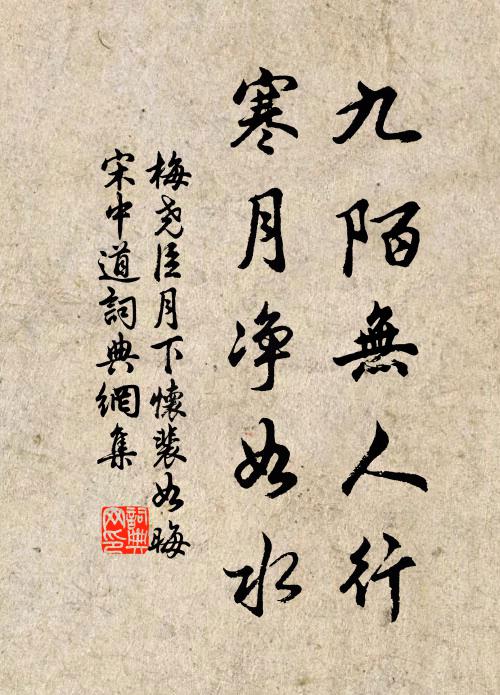 九陌無人行
寒月净如水
梅尧臣月下懷裴如晦
宋中道詞典網集
詞典网印